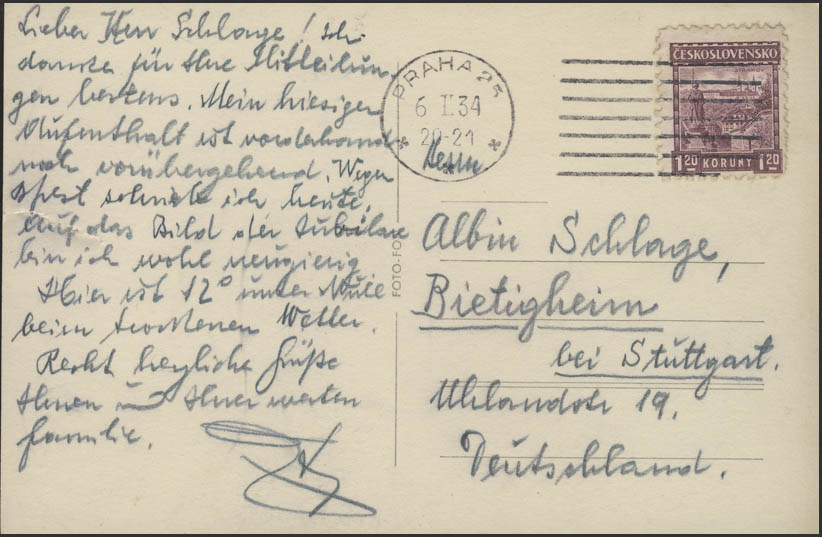 Lieber Herr Schlage! Ich
danke für Ihre Mitteilun-
gen bestens. Mein hiesiger
Aufenthalt ist vorderhand
noch vorübergehend. Wegen
schrieb ich heute.
Auf das Bild der Jubilare
bin ich wohl neugierig
Hier ist 12° unter Nule
beim trockenen Wetter.
Recht herzliche Grüße
Ihnen und Ihrer werten
Familie.
FOTO-FO
PRAHA 25
6 I. 34
20-21
ČESKOSLOVENSKO
1.20 KORUNY 1.20
Herrn
Albin Schlage,
Bietigheim
bei Stuttgart.
Uhlandstr 19.
Deutschland.